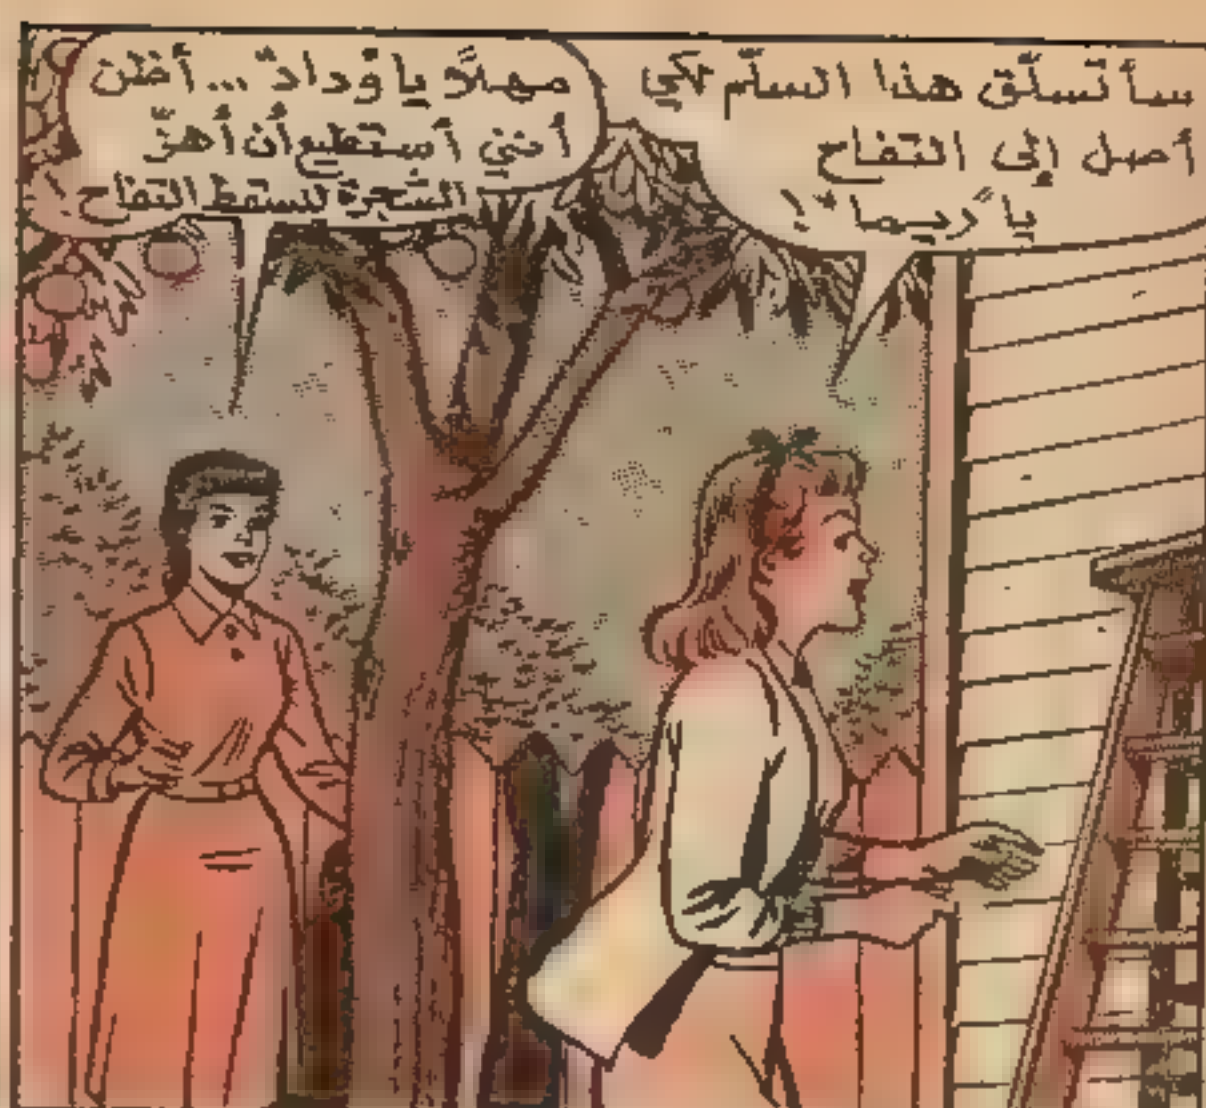 سأتسلّق هذا السلّم لكي
أصل إلى التفاح
يا "ريما"!
مهلًا يا "وداد"... أظن
أنني أستطيع أن أهزّ
الشجرة ليسقط التفاح!